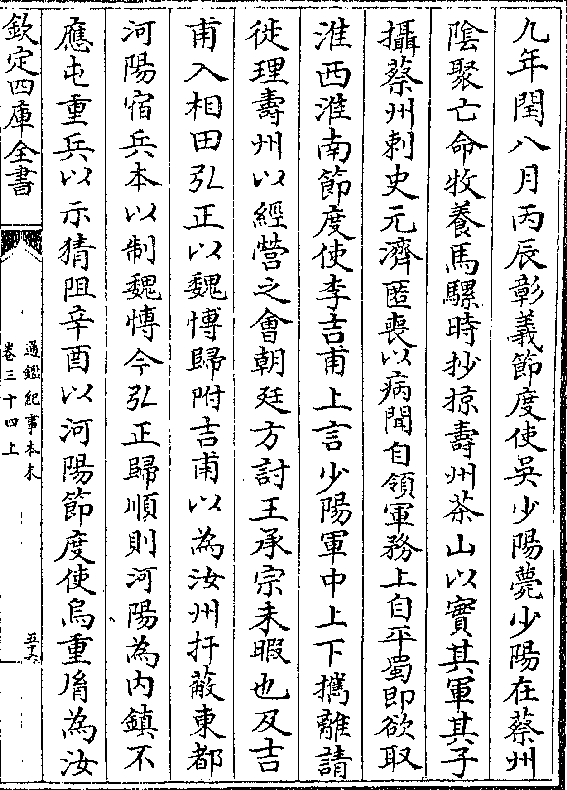 九年閏八月丙辰彰義節度使吳少陽薨少陽在蔡州
陰聚亡命牧養馬騾時抄掠壽州茶山以實其軍其子
攝蔡州刺史元濟匿喪以病聞自領軍務上自平蜀即欲取
淮西淮南節度使李吉甫上言少陽軍中上下攜離請
徙理壽州以經營之會朝廷方討王承宗未暇也及吉
甫入相田弘正以魏博歸附吉甫以為汝州扞蔽東都
河陽宿兵本以制魏博今弘正歸順則河陽為內鎮不
應屯重兵以示猜阻辛酉以河陽節度使烏重𦙍為汝
欽定四庫全書
通鑑紀事本末
卷三十四上
五十六